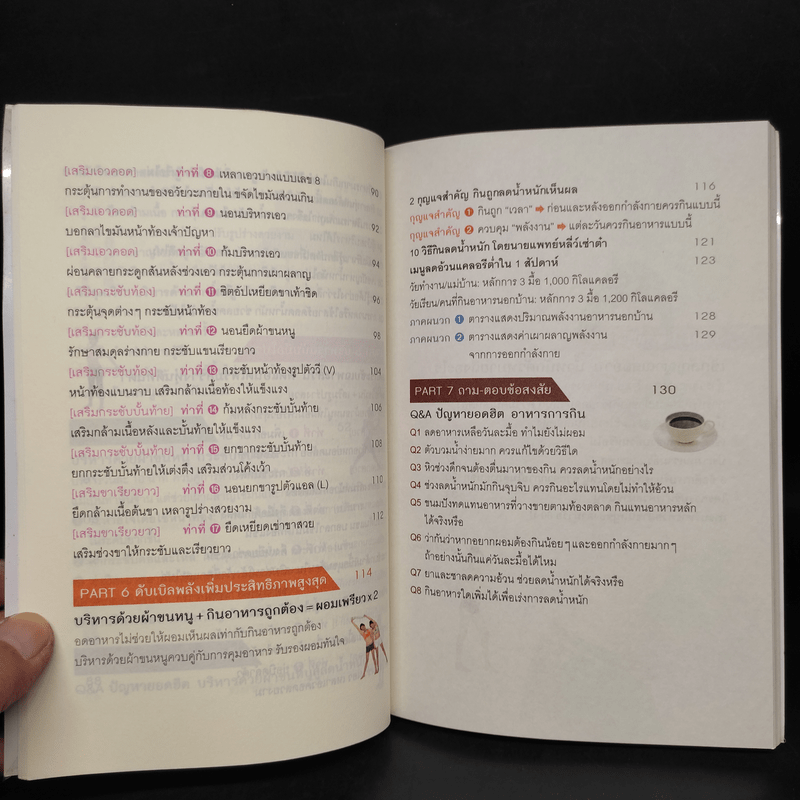 [เสริมเอวคอด] ท่าที่ 8 เหลาเอวบางแบบเลข 8
กระตุ้นการทำงานของอวัยวะภายใน ขจัดไขมันส่วนเกิน 90
[เสริมเอวคอด] ท่าที่ 9 นอนบริหารเอว
บอกลาไขมันหน้าท้องเจ้าปัญหา 92
[เสริมเอวคอด] ท่าที่ 10 ก้มบริหารเอว
ผ่อนคลายกระดูกสันหลังช่วงเอว กระตุ้นการเผาผลาญ 94
[เสริมกระชับท้อง] ท่าที่ 11 ซิตอัปเหยียดขาเท้าชิด
กระตุ้นจุดต่างๆ กระชับหน้าท้อง 96
[เสริมกระชับท้อง] ท่าที่ 12 นอนยืดผ้าขนหนู
รักษาสมดุลร่างกาย กระชับแขนเรียวยาว 98
[เสริมกระชับท้อง] ท่าที่ 13 กระชับหน้าท้องรูปตัววี (V)
หน้าท้องแบนราบ เสริมกล้ามเนื้อท้องให้แข็งแรง 104
[เสริมกระชับบั้นท้าย] ท่าที่ 14 ก้มหลังกระชับบั้นท้าย
เสริมกล้ามเนื้อหลังและบั้นท้ายให้แข็งแรง 106
[เสริมกระชับบั้นท้าย] ท่าที่ 15 ยกขากระชับบั้นท้าย
ยกกระชับบั้นท้ายให้เต่งตึง เสริมส่วนโค้งเว้า 108
[เสริมขาเรียวยาว] ท่าที่ 16 นอนยกขารูปตัวแอล (L)
ยืดกล้ามเนื้อต้นขา เหลารูปร่างสวยงาม 110
[เสริมขาเรียวยาว] ท่าที่ 17 ยืดเหยียดเข่าขาสวย
เสริมช่วงขาให้กระชับและเรียวยาว 112
PART 6 ดับเบิลพลังเพิ่มประสิทธิภาพสูงสุด 114
บริหารด้วยผ้าขนหนู + กินอาหารถูกต้อง = ผอมเพรียว x 2
อดอาหารไม่ช่วยให้ผอมเห็นผลเท่ากับกินอาหารถูกต้อง
บริหารด้วยผ้าขนหนูควบคู่กับการคุมอาหาร รับรองผอมทันใจ
2 กุญแจสำคัญ กินถูกลดน้ำหนักเห็นผล 116
กุญแจสำคัญ 1 กินถูก "เวลา" ➡ ก่อนและหลังออกกำลังกายควรกินแบบนี้
กุญแจสำคัญ 2 ควบคุม "พลังงาน" ➡ แต่ละวันควรกินอาหารแบบนี้
10 วิธีกินลดน้ำหนัก โดยนายแพทย์หลี่ว์เซ่าต๋า 121
เมนูลดอ้วนแคลอรีต่ำใน 1 สัปดาห์ 123
วัยทำงาน/แม่บ้าน: หลักการ 3 มื้อ 1,000 กิโลแคลอรี
วัยเรียน/คนที่กินอาหารนอกบ้าน: หลักการ 3 มื้อ 1,200 กิโลแคลอรี
ภาคผนวก 1 ตารางแสดงปริมาณพลังงานอาหารนอกบ้าน 128
ภาคผนวก 2 ตารางแสดงค่าเผาผลาญพลังงาน 129
จากการออกกำลังกาย
PART 7 ถาม-ตอบข้อสงสัย 130
Q&A ปัญหายอดฮิต อาหารการกิน
Q1 ลดอาหารเหลือวันละมื้อ ทำไมยังไม่ผอม
Q2 ตัวบวมน้ำง่ายมาก ควรแก้ไขด้วยวิธีใด
Q3 หิวช่วงดึกจนต้องตื่นมาหาของกิน ควรลดน้ำหนักอย่างไร
Q4 ช่วงลดน้ำหนักมักกินจุบจิบ ควรกินอะไรแทนโดยไม่ทำให้อ้วน
Q5 ขนมปังทดแทนอาหารที่วางขายตามท้องตลาด กินแทนอาหารหลัก
ได้จริงหรือ
Q6 ว่ากันว่าหากอยากผอมต้องกินน้อยๆ และออกกำลังกายมากๆ
ถ้าอย่างนั้นกินแค่วันละมื้อได้ไหม
Q7 ยาและชาลดความอ้วน ช่วยลดน้ำหนักได้จริงหรือ
Q8 กินอาหารใดเพิ่มได้เพื่อเร่งการลดน้ำหนัก